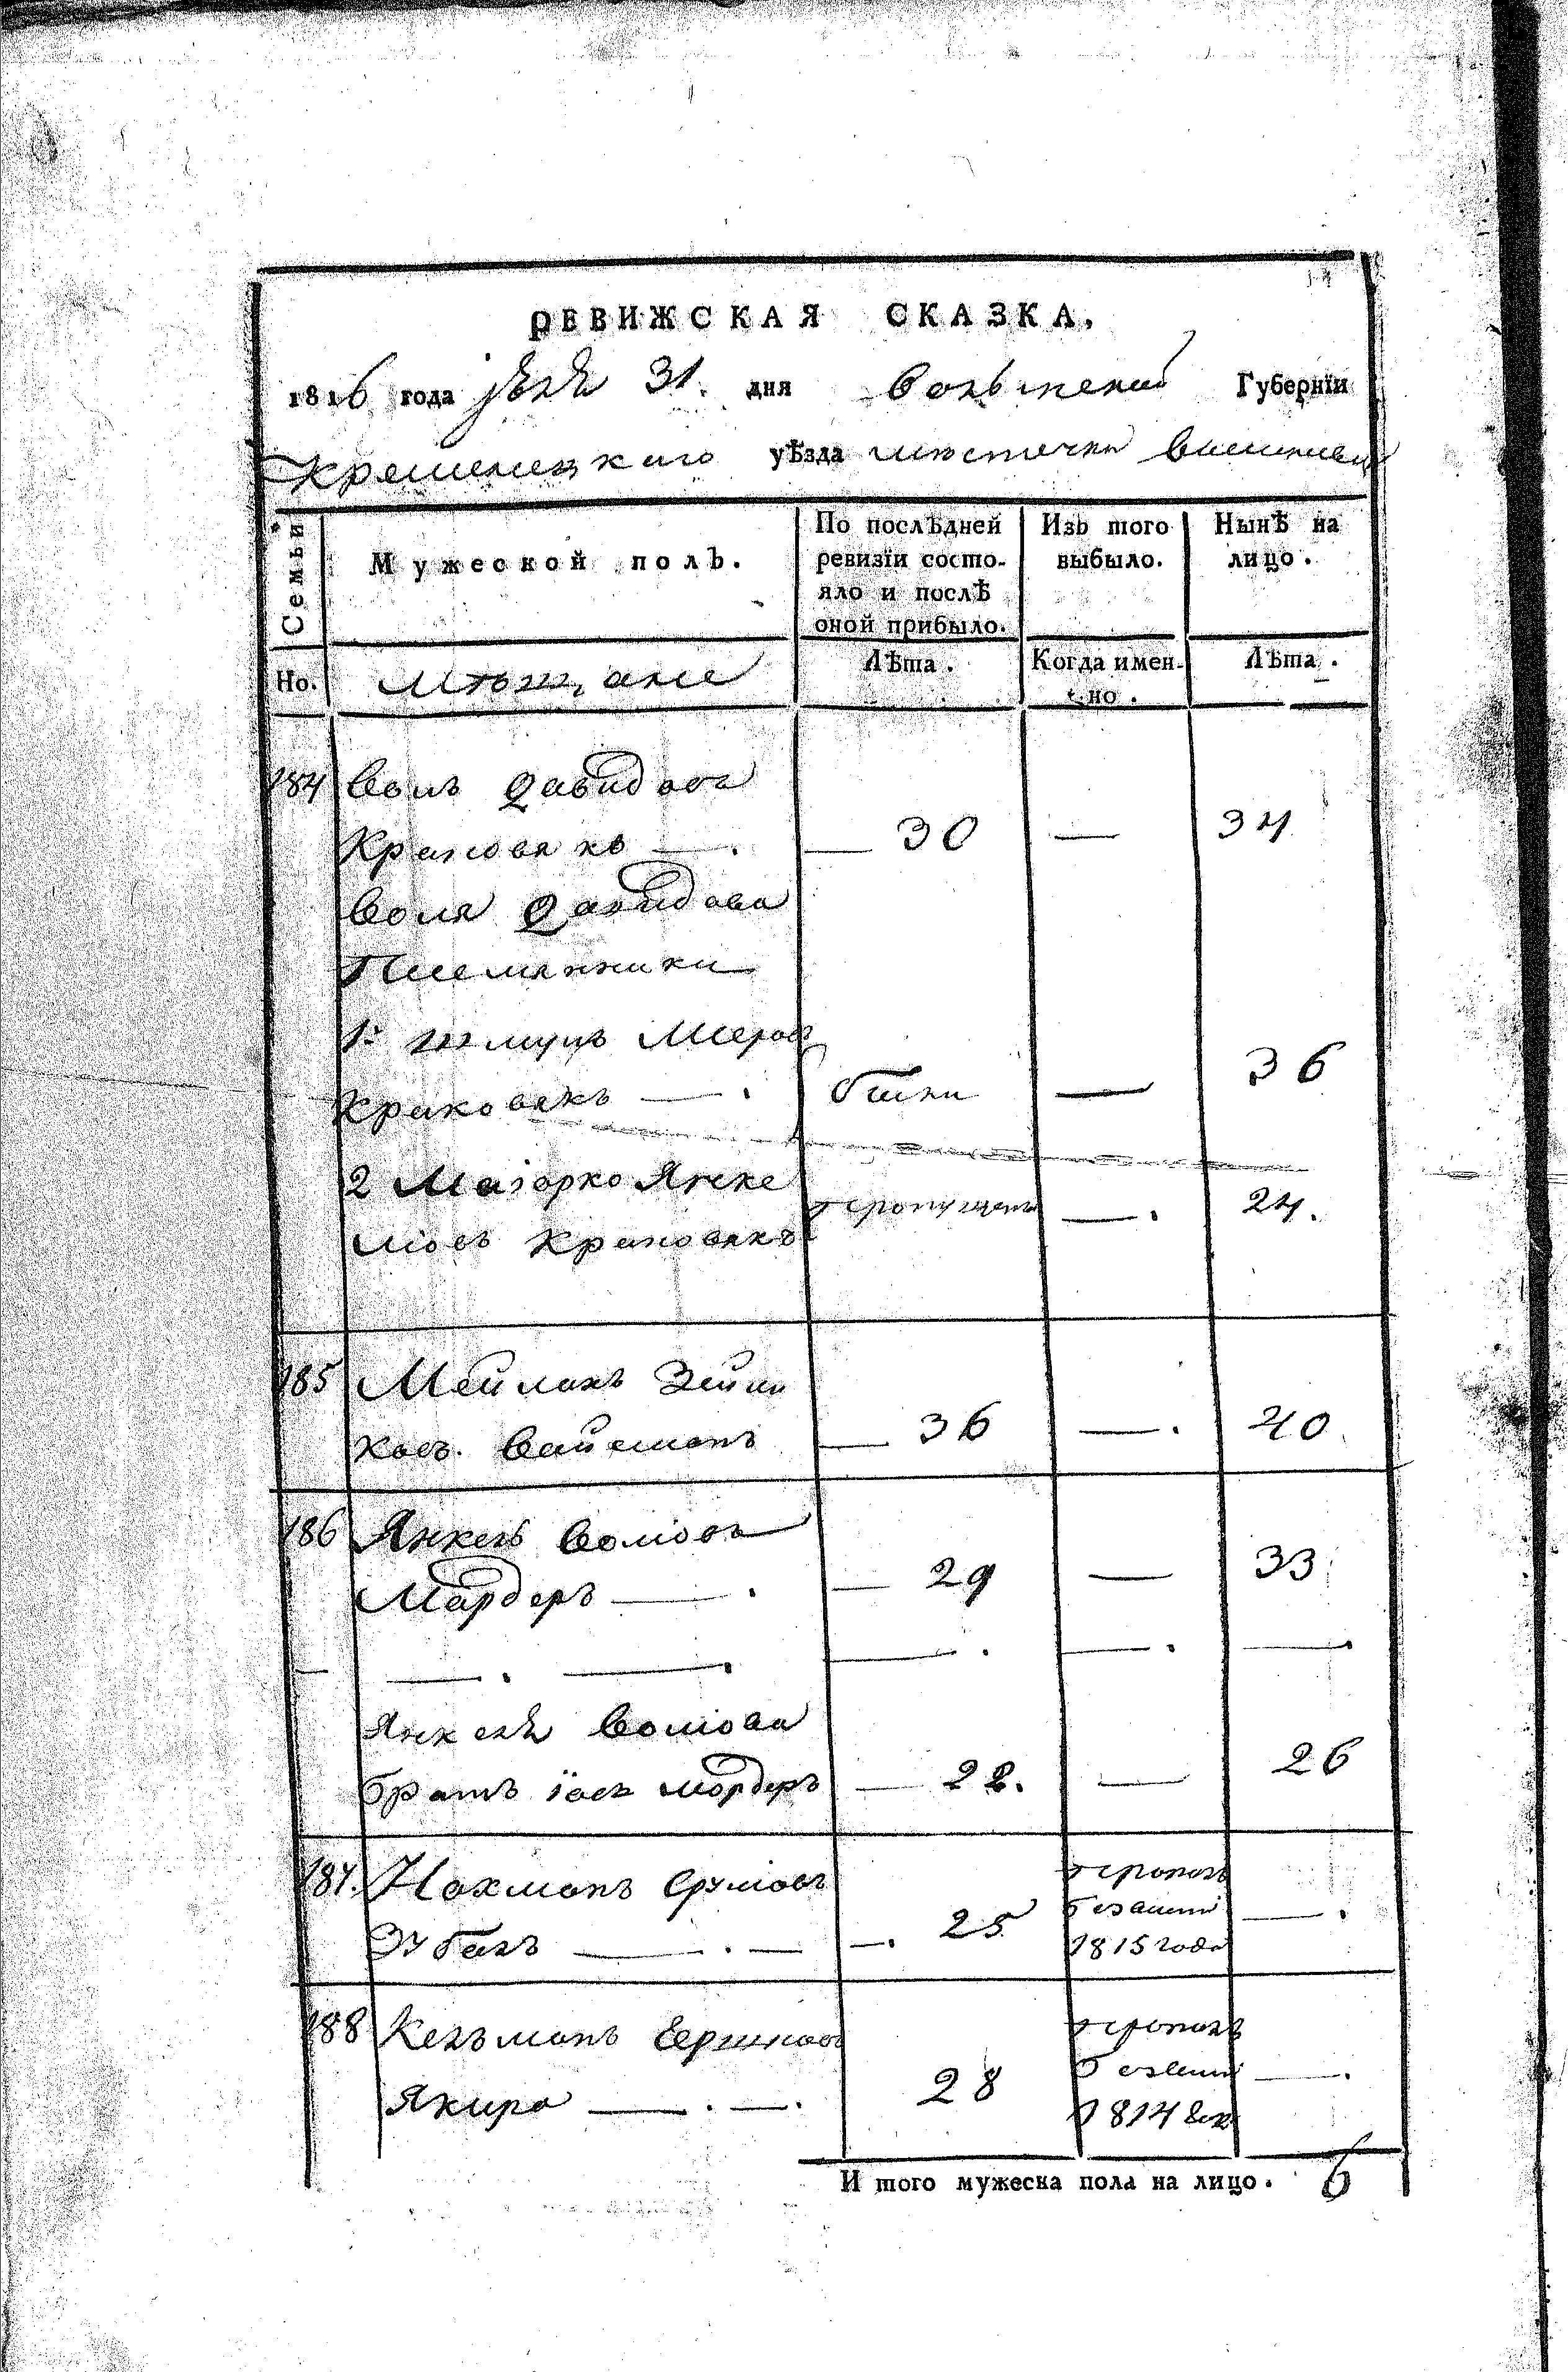 РЕВИЖСКАЯ СКАЗКА.
1816 года 31. дня Волынской Губернїи
Кременецкаго уѣзда местечка
Семьи
Мужеской полъ.
По послѣдней ревизїи состояло и послѣ оной прибыло.
Изъ того выбыло.
Нынѣ на лицо.
Но.
Мѣщане
Лѣта.
Когда именно.
Лѣта.
184 Волъ Давидовъ
Краковякъ — 30 — 34
Воля Давидова
Племянники
1й Шмулъ
Краковякъ — — 36
2 Маіорко Янке
лювъ Краковякъ пропущенъ — 24.
185 Мейлахъ Зейли
ковъ Вайсманъ — 36 — 40
186 Янкель Волювъ
Мардеръ — 29 — 33
Янкеля Волюва
братъ Іось Мордеръ — 22. — 26
187. Нахманъ Срулювъ пропалъ
— 25 без вести —
1815 года
188 Кельманъ Гершковъ пропалъ
Якиро — 28 безвести —
1814
И того мужеска пола на лицо. 6